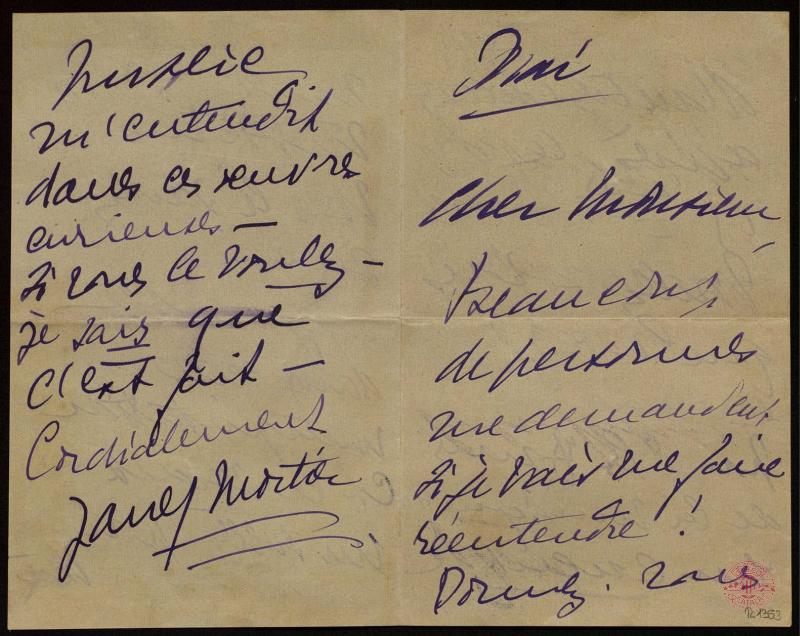 Mai
Cher Monsieur,
Beaucoup
de personnes
me demandent
si je vais me faire
réentendre !
Donnez-vous
public
m'entendit
dans ces œuvres
curieuses —
Si vous le voulez —
je sais que
c'est fait —
Cordialement
R 1353